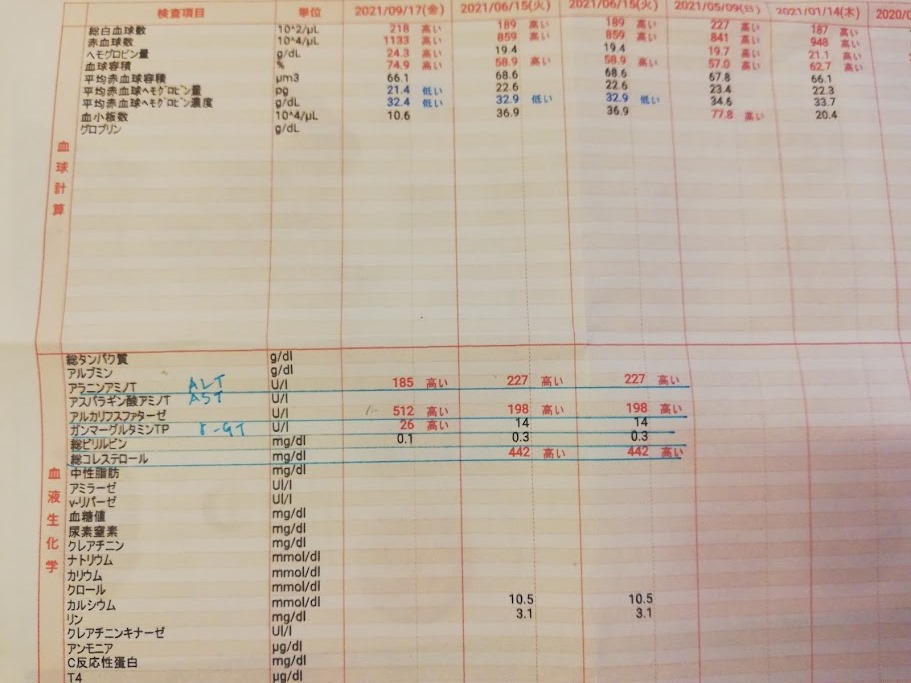 検査項目 単位 2021/09/17(金) 2021/06/15(火) 2021/06/15(火) 2021/05/09(日) 2021/01/14(木) 2020/0
総白血球数 10^2/μL 218 高い 189 高い 189 高い 227 高い 187 高い
赤血球数 10^4/μL 1133 高い 859 高い 859 高い 841 高い 948 高い
ヘモグロビン量 g/dL 24.3 高い 19.4 19.4 19.7 高い 21.1 高い
血球容積 % 74.9 高い 58.9 高い 58.9 高い 57.0 高い 62.7 高い
平均赤血球容積 μm3 66.1 68.6 68.6 67.8 66.1
平均赤血球ヘモグロビン量 pg 21.4 低い 22.6 22.6 23.4 22.3
平均赤血球ヘモグロビン濃度 g/dL 32.4 低い 32.9 低い 32.9 低い 34.6 33.7
血小板数 10^4/μL 10.6 36.9 36.9 77.8 高い 20.4
グロブリン g/dL
血球計算
総タンパク質 g/dl
アルブミン g/dl
アラニンアミノT ALT U/l 185 高い 227 高い 227 高い
アスパラギン酸アミノT AST U/l
アルカリフスファターゼ U/l 512 高い 198 高い 198 高い
ガンマーグルタミンTP γ-GT U/l 26 高い 14 14
総ビリルビン mg/dl 0.1 0.3 0.3
総コレステロール mg/dl 442 高い 442 高い
中性脂肪 mg/dl
アミラーゼ Ul/l
v-リパーゼ Ul/l
血糖値 mg/dl
尿素窒素 mg/dl
クレアチニン mg/dl
ナトリウム mmol/dl
カリウム mmol/dl
クロール mmol/dl
カルシウム mmol/dl 10.5 10.5
リン mg/dl 3.1 3.1
クレアチニンキナーゼ Ul/l
アンモニア μg/dl
C反応性蛋白 mg/dl
T4 μg/dl
血液生化学